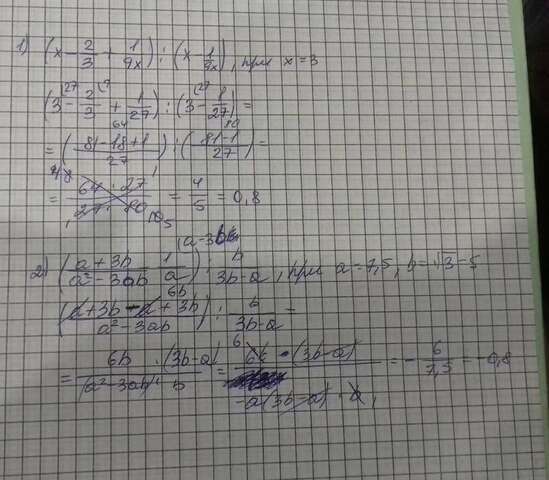 1) (x - 2/3 + 1/9x) : (x - 1/9x), при x = 3
(3 - 2/3 + 1/27) : (3 - 1/27) =
= (81-18+1/27) : (81-1/27) =
= 64 · 27/27 · 80 = 4/5 = 0,8
2) (a+3b/a²-3ab - 1/a) : b/3b-a, при a = 7,5, b = √3 - 5
(a+3b-a+3b/a²-3ab) : b/3b-a =
= 6b · (3b-a)/(a²-3ab) · b = 6b · (3b-a)/-a(3b-a) · b = - 6/7,5 = -0,8